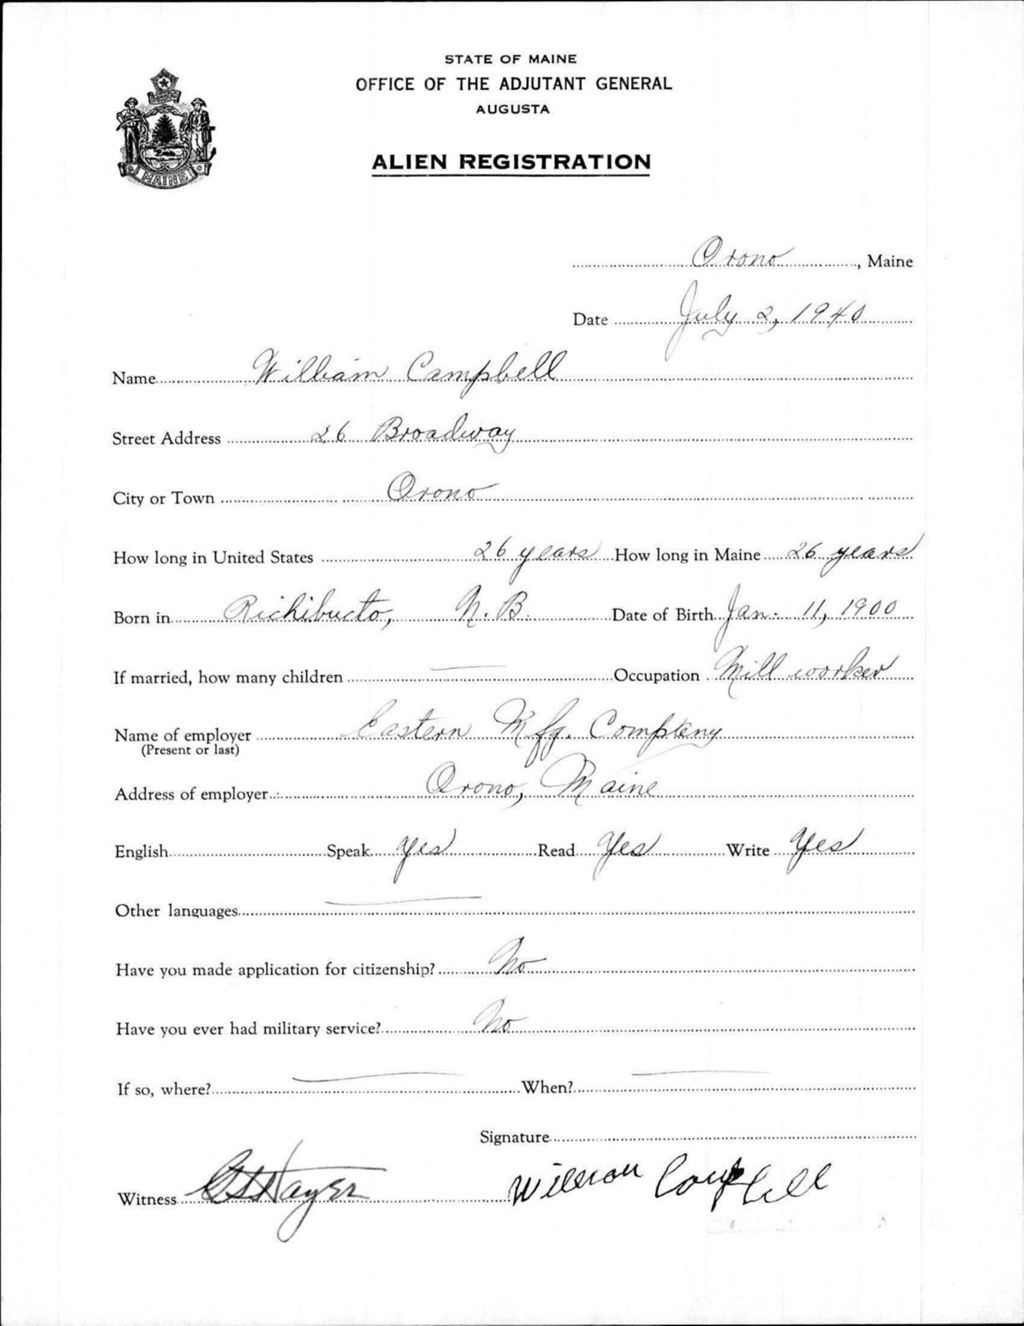 STATE OF MAINE
OFFICE OF THE ADJUTANT GENERAL
AUGUSTA
ALIEN REGISTRATION
MAINE
Orono, Maine
Date July 2, 1940
Name William Campbell
Street Address 26 Broadway
City or Town Orono
How long in United States 26 years How long in Maine 26 years
Born in Richibucto, N.B. Date of Birth Jan. 11, 1900
If married, how many children — Occupation Mill worker
Name of employer Eastern Mfg. Company
(Present or last)
Address of employer Orono, Maine
English Speak Yes Read Yes Write Yes
Other languages —
Have you made application for citizenship? No
Have you ever had military service? No
If so, where? — When? —
Signature
Witness William Campbell